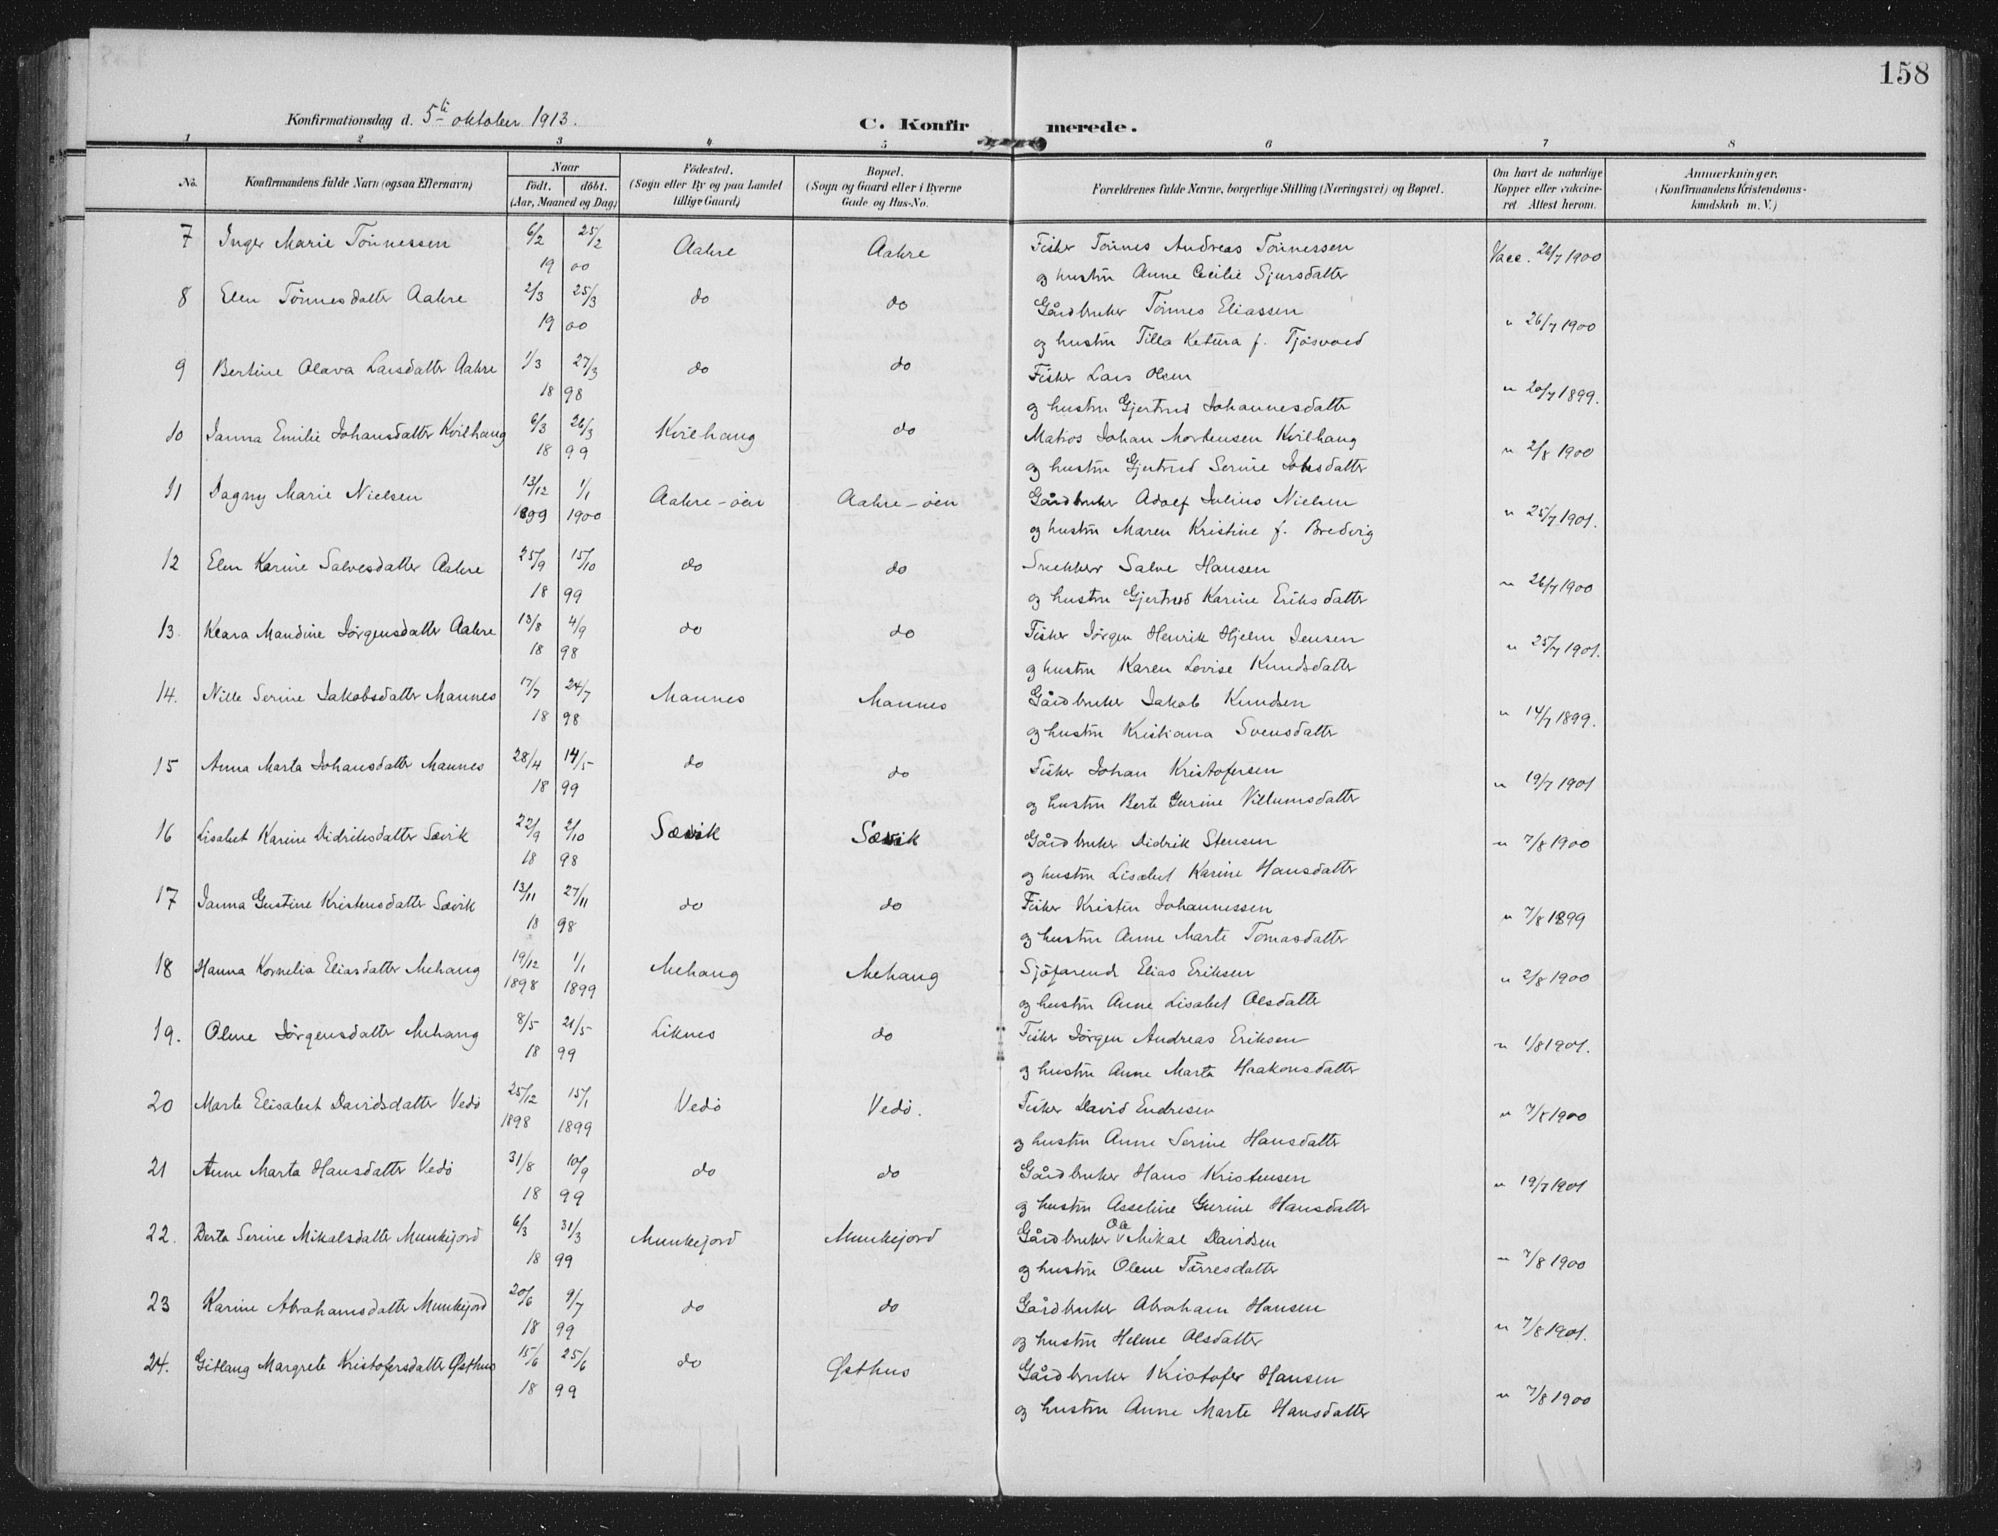 158
Konfirmationsdag d. 5te oktober 1913.
C. Konfirmerede.
1 2 3 4 5 6 7 8
No. Konfirmandens fulde Navn (ogsaa Efternavn) Naar født. døbt. (Aar, Maaned og Dag) Födested. (Sogn eller By og paa Landet tillige Gaard) Bopæl. (Sogn og Gaard eller i Byerne Gade og Hus-No. Forældrenes fulde Navne, borgerlige Stilling (Næringsvei) og Bopæl. Om havt de naturlige Kopper eller vakcineret. Attest herom. Anmærkninger. (Konfirmandens Kristendomskundskab m. V.)
7 Inger Marie Tönnessen 6/2 25/2 Aahre Aahre Fisker Tönnes Andreas Tönnessen Vacc. 26/7 1900
19 00 og hustru Anne Cecilie Sjursdatter
8 Elen Tönnesdatter Aahre 2/3 25/3 do do Gårdbruker Tönnes Eliassen
19 00 og hustru Tilla Ketura f. Tjösvold " 26/7 1900
9 Bertine Olava Larsdatter Aahre 1/3 27/3 do do Fisker Lars Olsen
18 98 og hustru Gjertrud Johannesdatter " 20/7 1899.
10 Janna Emilie Johansdatter Kvilhaug 6/3 26/3 Kvilhaug do Matros Johan Mortensen Kvilhaug
18 99 og hustru Gjertrud Serine Johsdatter " 2/8 1900
11 Dagny Marie Nielsen 13/12 1/1 Aahre-öen Aahre-öen Gårdbruker Adolf Julius Nielsen
1899 1900 og hustru Maren Kristine f. Bredvig " 25/7 1901.
12 Elen Karine Salvesdatter Aahre 25/9 15/10 do do Snekker Salve Hansen
18 99 og hustru Gjertrud Karine Eriksdatter " 26/7 1900
13. Klara Mandine Jörgensdatter Aahre 13/8 4/9 do do Fisker Jörgen Henrik Hjelm Jensen
18 98 og hustru Karen Lovise Knudsdatter " 25/7 1901.
14. Nille Serine Jakobsdatter Mannes 17/7 24/7 Mannes Mannes Gårdbruker Jakob Knudsen
18 98 og hustru Kristiana Svensdatter " 14/7 1899.
15 Anna Marta Johansdatter Mannes 28/4 14/5 do do Fisker Johan Kristofersen
18 99 og hustru Berte Gurine Villumsdatter " 19/7 1901
16 Lisabet Karine Didriksdatter Sævik 22/9 2/10 Sævik Sævik Gårdbruker Didrik Stensen " 7/8 1900
18 98 og hustru Lisabet Karine Hansdatter
17 Janna Gustine Kristensdatter Sævik 13/11 27/11 do do Fisker Kristen Johannessen
18 98 og hustru Anne Marte Tomasdatter " 7/8 1899
18 Hanna Kornelia Eliasdatter Mehaug 19/12 1/1 Mehaug Mehaug Sjöfarend Elias Eriksen " 2/8 1900
1898 1899 og hustru Anne Lisabet Olsdatter
19. Olene Jörgensdatter Mehaug 8/5 21/5 Liknes do Fisker Jörgen Andreas Eriksen " 1/8 1901.
18 99 og hustru Anne Marta Haakonsdatter
20 Marte Elisabet Davidsdatter Vedö 25/12 15/1 Vedö Vedö. Fisker David Endresen " 7/8 1900
1898 1899 og hustru Anne Serine Hansdatter
21 Anne Marta Hansdatter Vedö 31/8 10/9 do do Gårdbruker Hans Kristensen " 19/7 1901
18 99 og hustru Asseline Gurine Hansdatter
22. Berta Serine Mikalsdatter Munkejord 6/3 31/3 Munkejord Munkejord Gårdbruker Ole Mikal Davidsen
18 99 og hustru Olene Tørresdatter " 7/8 1900
23 Karine Abrahamsdatter Munkejord 20/6 9/7 do do Gårdbruker Abraham Hansen
18 99 og hustru Helene Olsdatter " 7/8 1901.
24. Gitlaug Margrete Kristofersdatter Østhus 15/6 25/6 do Østhus Gårdbruker Kristofer Hansen
18 99 og hustru Anne Marte Hansdatter " 7/8 1900